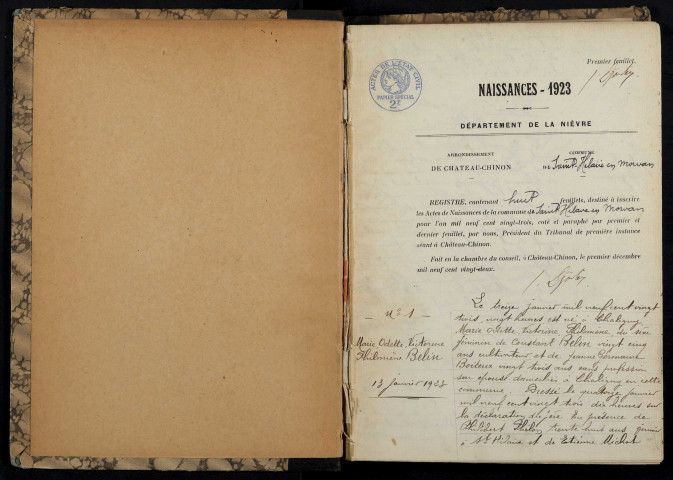 Premier feuillet.
ACTES DE L'ETAT CIVIL
PAPIER SPECIAL
2F
NAISSANCES - 1923
DÉPARTEMENT DE LA NIÈVRE
ARRONDISSEMENT
DE CHATEAU-CHINON
COMMUNE
DE Saint-Hilaire en Morvan
REGISTRE, contenant huit feuillets, destiné à inscrire
les Actes de Naissances de la commune de Saint Hilaire en Morvan
pour l'an mil neuf cent vingt-trois, coté et paraphé par premier et
dernier feuillet, par nous, Président du Tribunal de première instance
séant à Château-Chinon.
Fait en la chambre du conseil, à Château-Chinon, le premier décembre
mil neuf cent vingt-deux.
N° 1
Marie Odette Victorine
Philomène Belin
13 janvier 1923
Le treize janvier mil neuf cent vingt
trois, vingt heures est né à Chaligny
Marie Odette, Victorine, Philomène, du sexe
féminin de Constant Belin vingt cinq
ans cultivateur et de Jeanne Germaine
vingt trois ans sans profession
son épouse domiciliés à Chaligny en cette
commune. Dressé le quatorze janvier
mil neuf cent vingt trois dix heures sur
la déclaration du père. En présence de
Philibert trente huit ans
à St Hilaire et de Etienne Michot